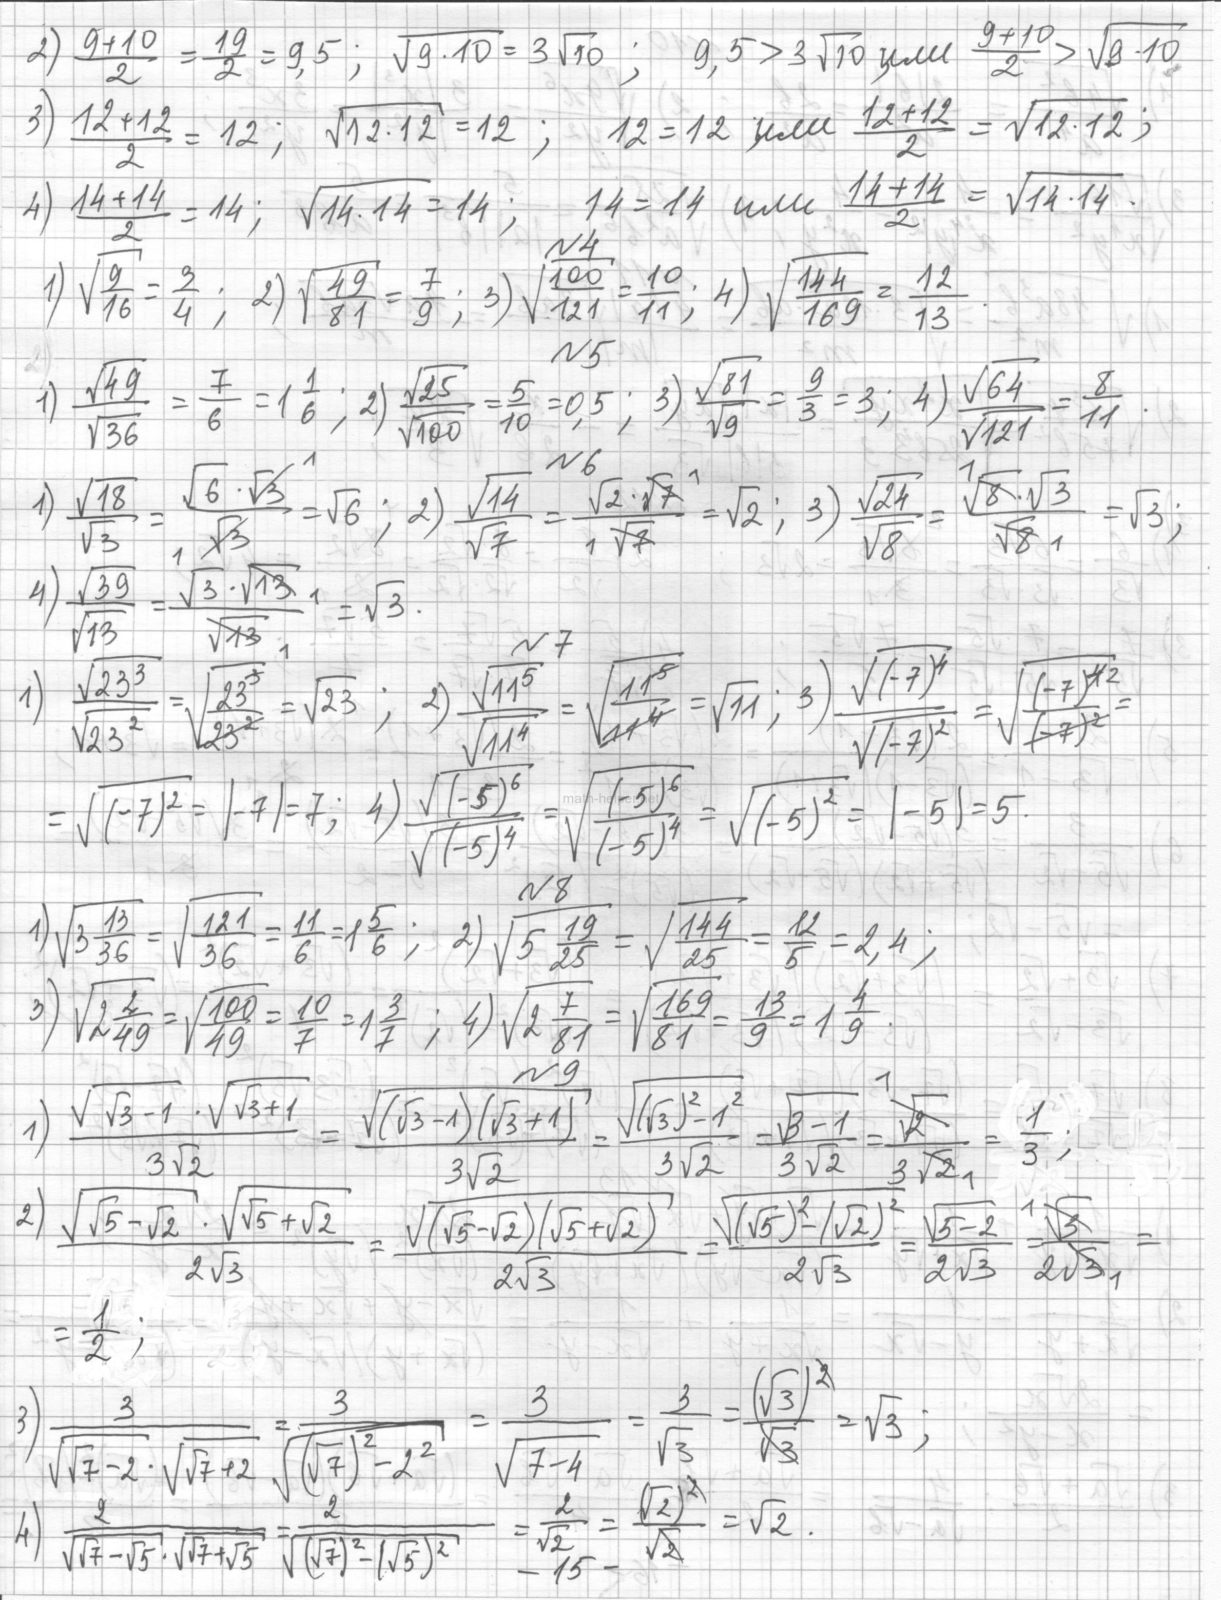 2) (9+10)/2 = 19/2 = 9,5 ; √(9·10) = 3√10 ; 9,5 > 3√10 или (9+10)/2 > √(9·10)
3) (12+12)/2 = 12 ; √(12·12) = 12 ; 12 = 12 или (12+12)/2 = √(12·12) ;
4) (14+14)/2 = 14 ; √(14·14) = 14 ; 14 = 14 или (14+14)/2 = √(14·14) .
№4
1) √(9/16) = 3/4 ; 2) √(49/81) = 7/9 ; 3) √(100/121) = 10/11 ; 4) √(144/169) = 12/13 .
№5
1) √49/√36 = 7/6 = 1 1/6 ; 2) √25/√100 = 5/10 = 0,5 ; 3) √81/√9 = 9/3 = 3 ; 4) √64/√121 = 8/11 .
№6
1) √18/√3 = (√6·√3)/√3 = √6 ; 2) √14/√7 = (√2·√7)/√7 = √2 ; 3) √24/√8 = (√8·√3)/√8 = √3 ;
4) √39/√13 = (√3·√13)/√13 = √3 .
№7
1) √(23³)/√(23²) = √(23³/23²) = √23 ; 2) √(11⁵)/√(11⁴) = √(11⁵/11⁴) = √11 ; 3) √((-7)⁴)/√((-7)²) = √((-7)⁴/(-7)²) =
= √((-7)²) = |-7| = 7 ; 4) √((-5)⁶)/√((-5)⁴) = √((-5)⁶/(-5)⁴) = √((-5)²) = |-5| = 5 .
№8
1) √(3 13/36) = √(121/36) = 11/6 = 1 5/6 ; 2) √(5 19/25) = √(144/25) = 12/5 = 2,4 ;
3) √(2 2/49) = √(100/49) = 10/7 = 1 3/7 ; 4) √(2 7/81) = √(169/81) = 13/9 = 1 4/9 .
№9
1) (√(√3-1)·√(√3+1))/(3√2) = √((√3-1)(√3+1))/(3√2) = √((√3)²-1²)/(3√2) = √(3-1)/(3√2) = √2/(3√2) = 1/3 ;
2) (√(√5-√2)·√(√5+√2))/(2√3) = √((√5-√2)(√5+√2))/(2√3) = √((√5)²-(√2)²)/(2√3) = √(5-2)/(2√3) = √3/(2√3) =
= 1/2 ;
3) 3/(√(√7-2)·√(√7+2)) = 3/√((√7)²-2²) = 3/√(7-4) = 3/√3 = (√3)²/√3 = √3 ;
4) 2/(√(√7-√5)·√(√7+√5)) = 2/√((√7)²-(√5)²) = 2/√2 = (√2)²/√2 = √2 .
- 15 -